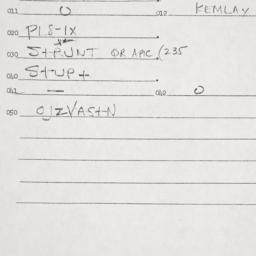 011 0 010 KEMLAY
020 PIS-1X
030 ST PUNT OR APC. (235
040 STUP+
041 — 040 0
050 OJZVASTN